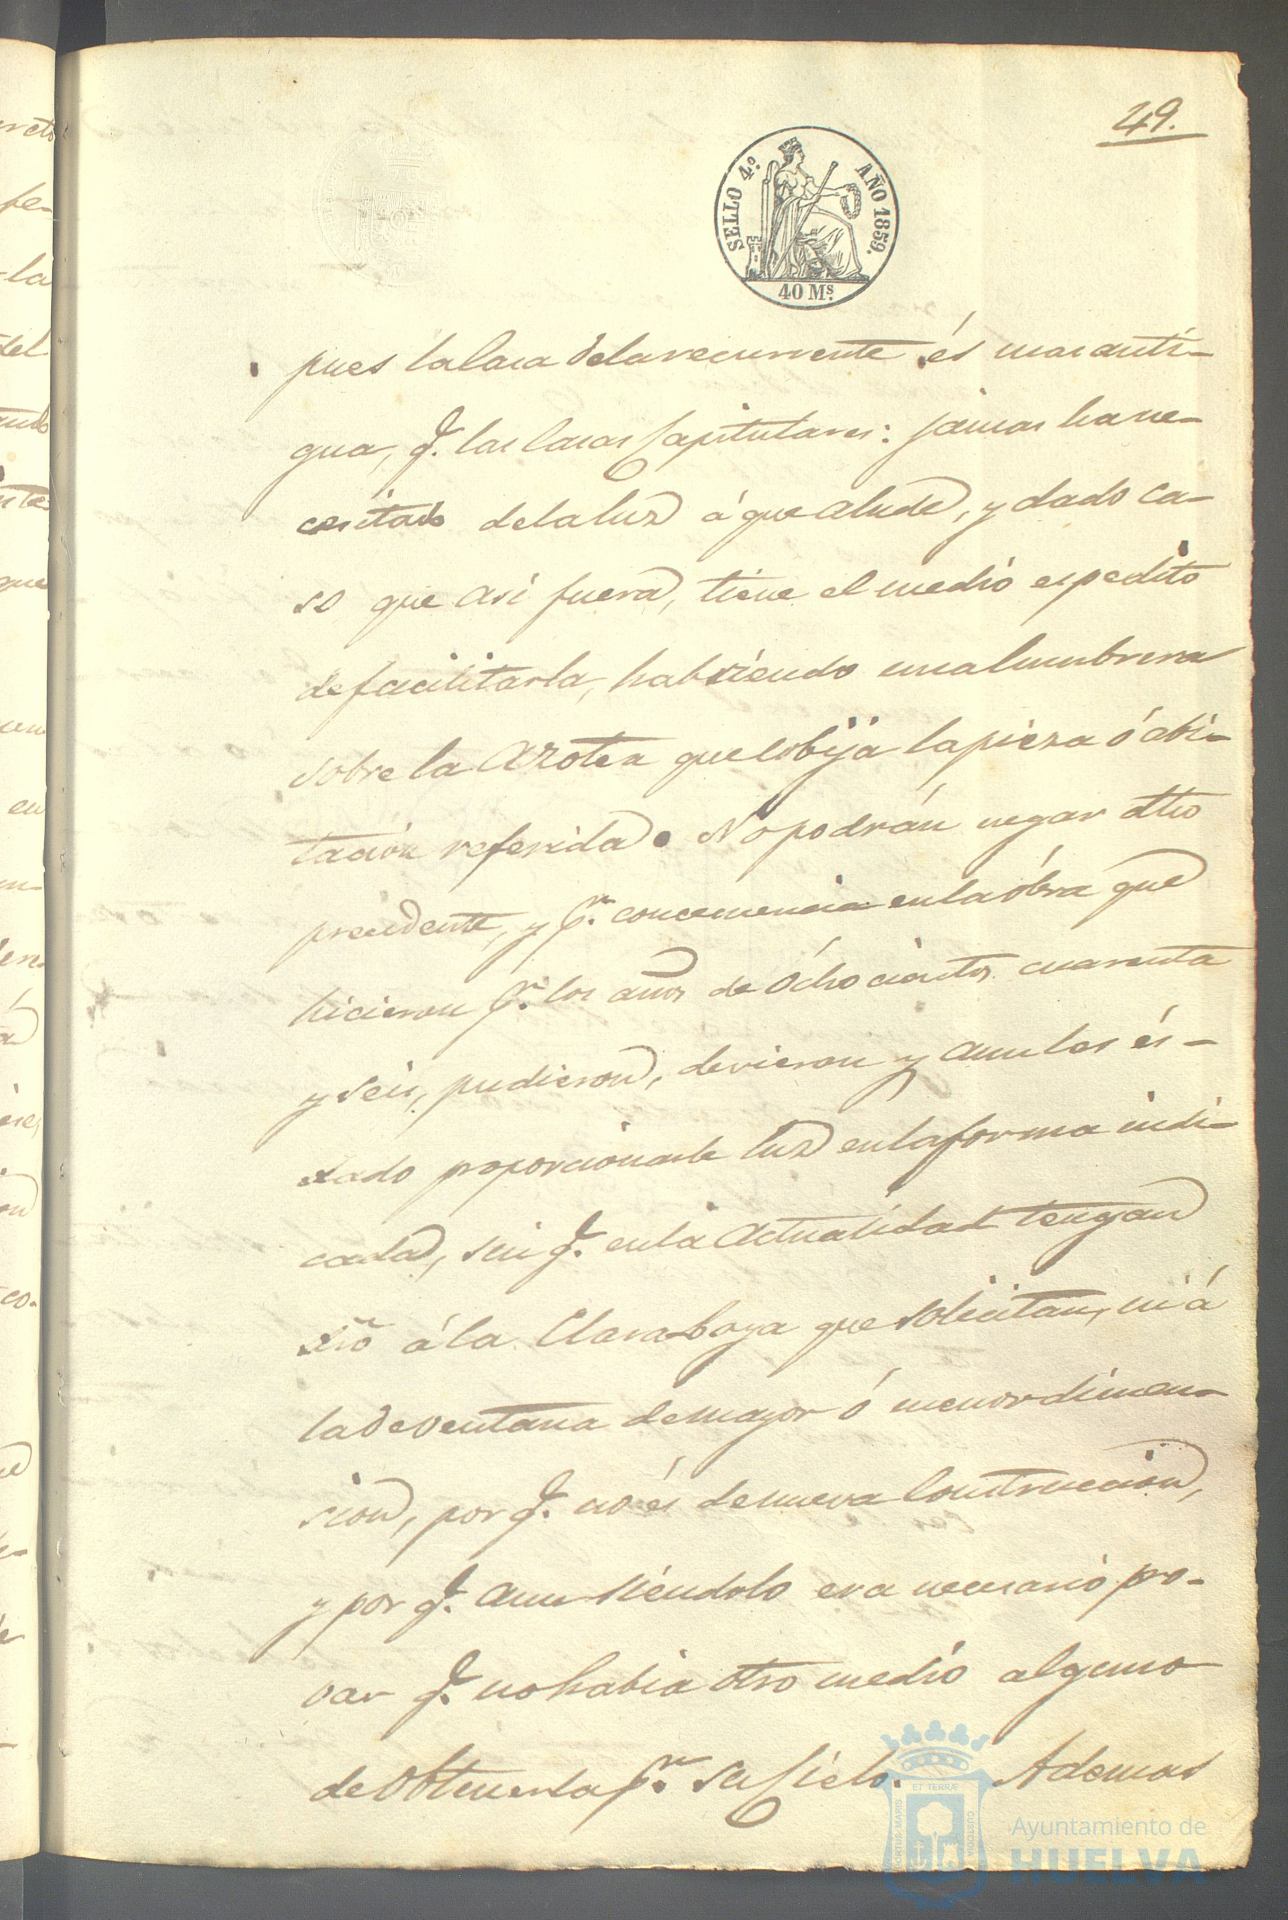 49.
SELLO 4.º AÑO 1859.
40 Ms.
pues la Casa de la recurrente és mas anti-
gua, q. las Casas Capitulares: jamas ha ne-
cesitado de la luz á que alude, y dado ca-
so que asi fuera, tiene el medio espedito
de facilitarla, habriendo una lumbrera
sobre la Azotea que cobija la pieza ó abi-
tación referida. No podrán negar dho
precedente, y pr. consecuencia en la óbra que
hicieron pr. los años de Ochocientos cuarenta
y seis, pudieron, devieron y aun les és-
tado proporcionarle luz en la forma indi-
cada, sin q. en la Actualidad tengan
dro á la Claraboya que solicitan, ni á
la de Ventana de mayor ó menor dimen-
sion, por q. no és de nueva Construccion,
y por q. aun siendolo era necesario pro-
var q. no habia otro medio alguno
de Obtenerla pr. su Cielo. Ademas
ET TERRÆ
PORTUS MARIS
CUSTODIA
Ayuntamiento de
HUELVA